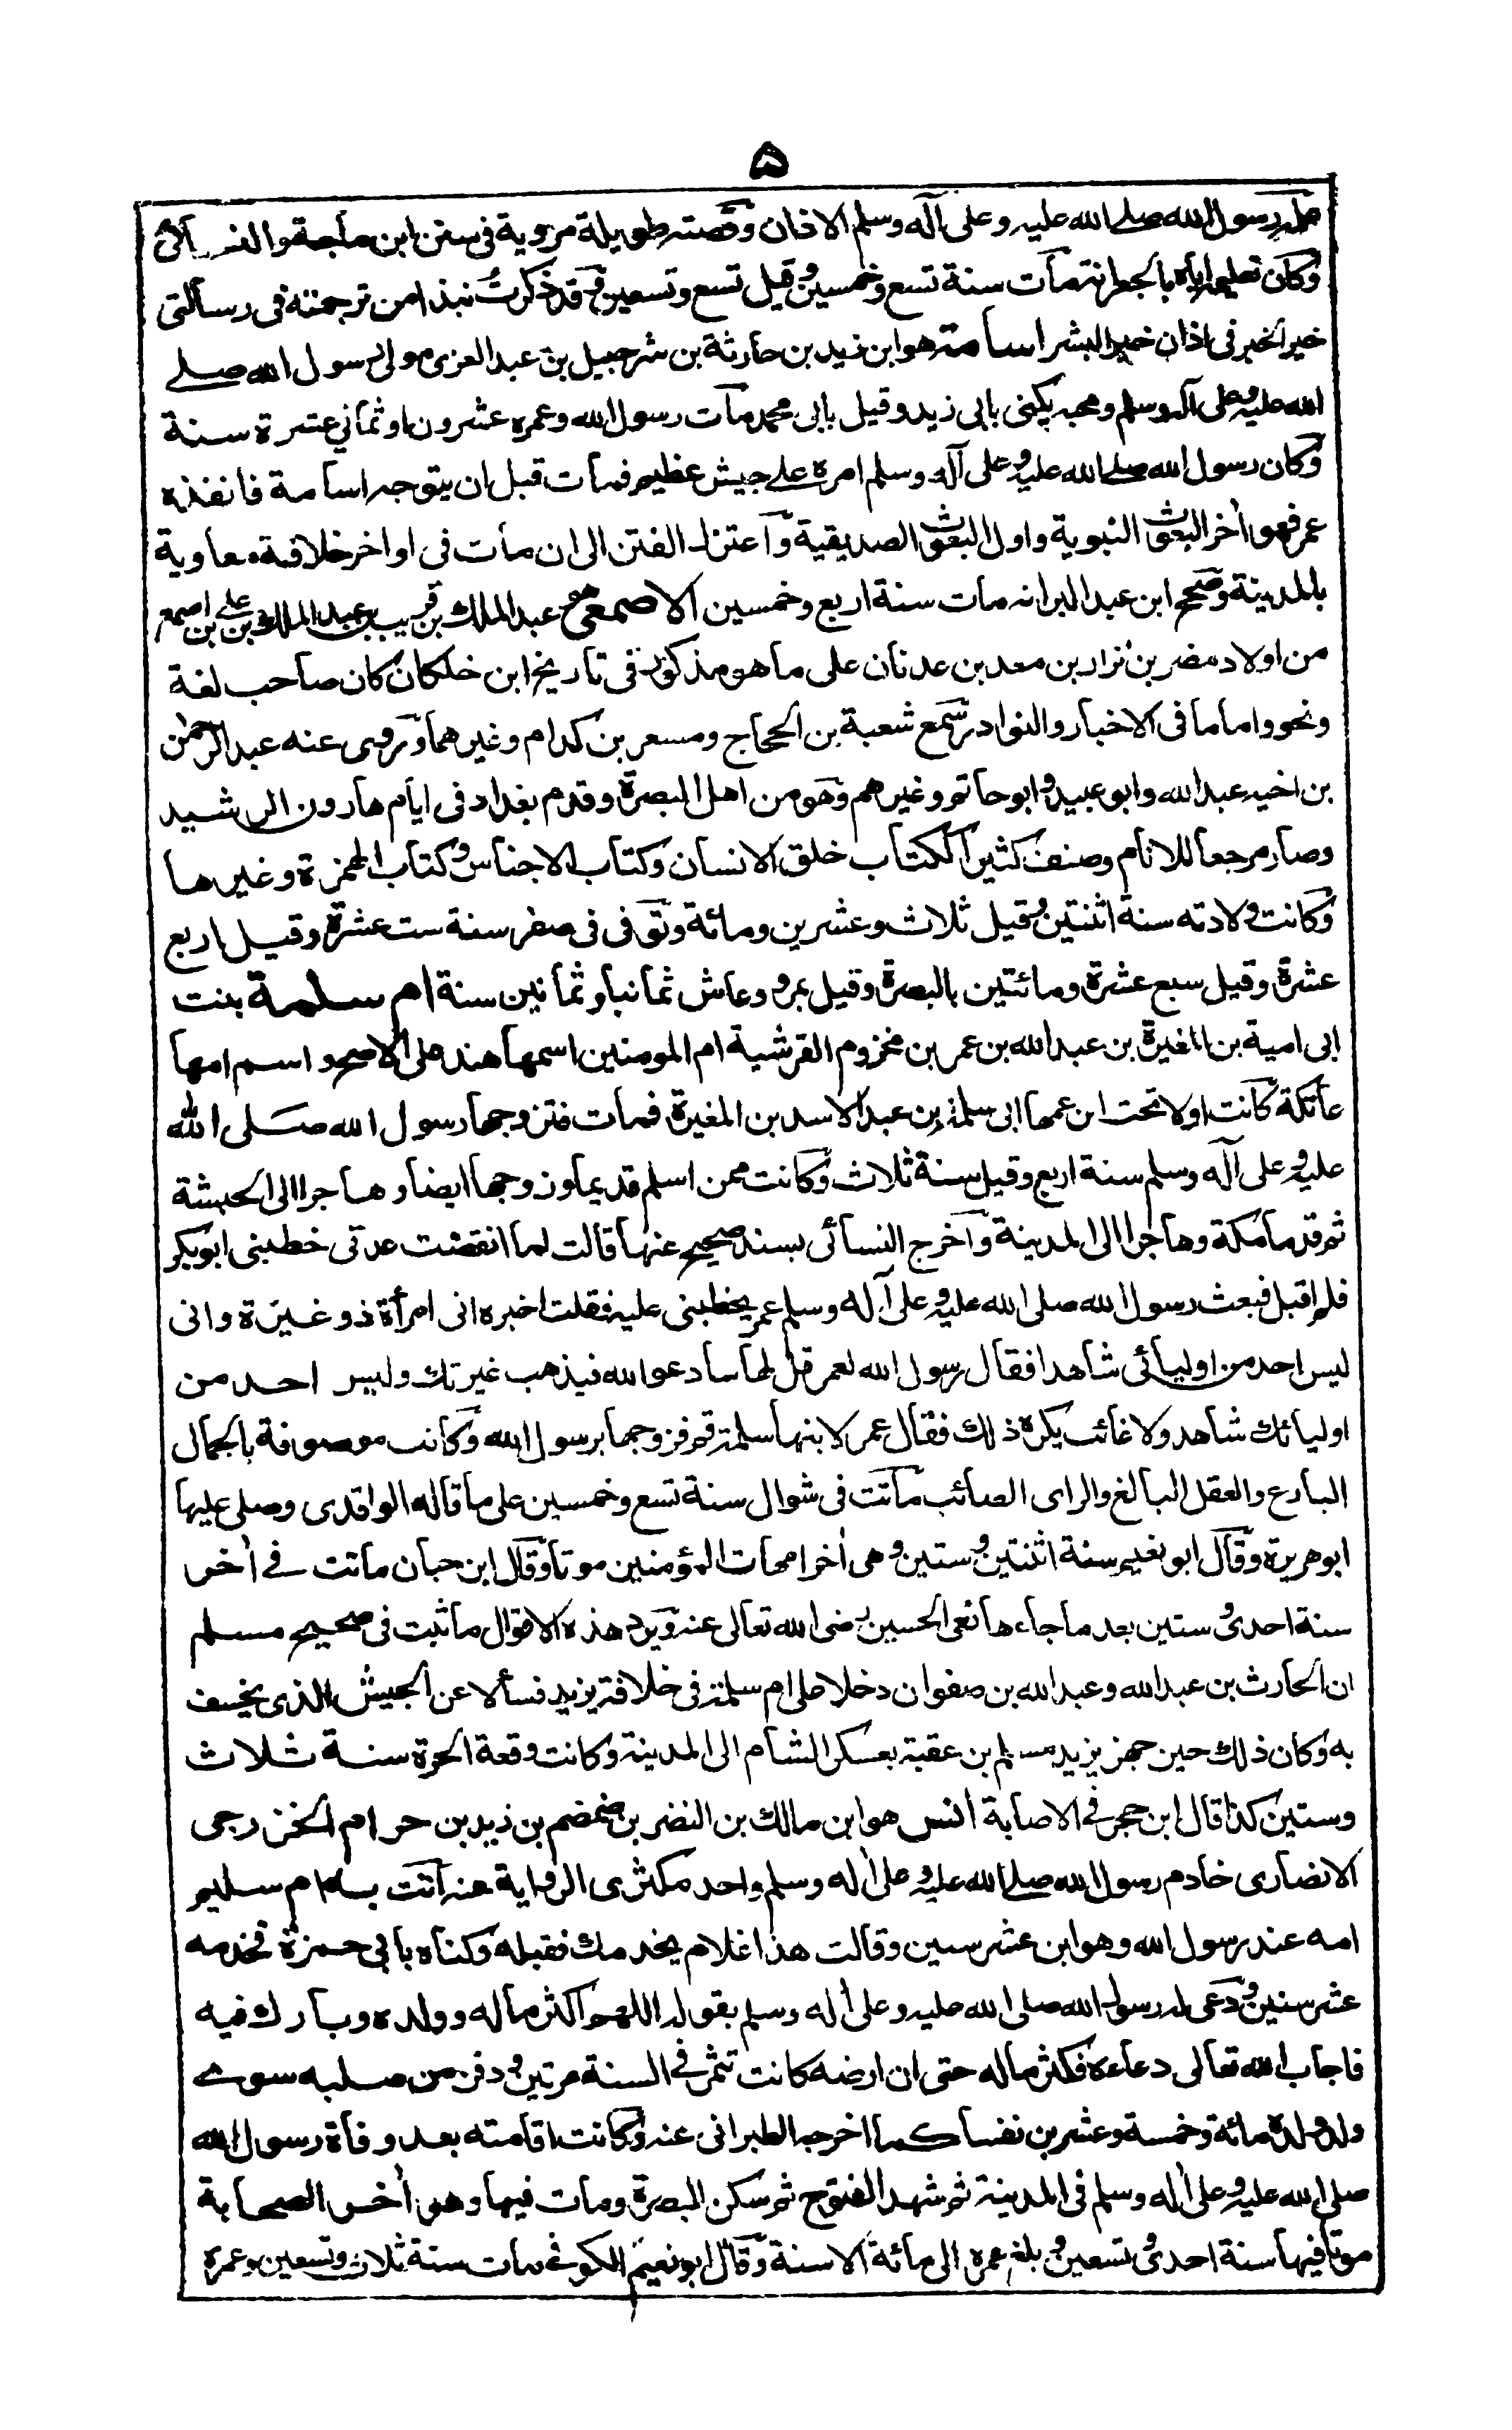 ۵
علمه رسول الله صلے الله عليه وعلى آله وسلم الاذان وقصته طويلة مروية فى سنن ابن ماجة والنسائى
وكان تعليمه اياه بالجعرانة مات سنة تسع وخمسين وقيل تسع وتسعين وقد ذكرت نبذا من ترجمته فى رسالتى
خير الخبر فى اذان خير البشر اسامة هو ابن زيد بن حارثة بن شرحبيل بن عبد العزى مولى رسول الله صلے
الله عليه وعلى آله وسلم ومحبه يكنى بابى زيد وقيل بابى محمد مات رسول الله وعمره عشرون او ثمانى عشرة سنة
وكان رسول الله صلے الله عليه وعلى آله وسلم امره على جيش عظيم فمات قبل ان يتوجه اسامة فانفذه
عمر فهو اٰخر البعوث النبوية واول البعوث الصديقية واعتزل الفتن الى ان مات فى اواخر خلافة معاوية
بالمدينة وصحح ابن عبد البر انه مات سنة اربع وخمسين الاصمعى هو عبد الملك بن قريب بن عبد الملك بن على بن اصمع
من اولاد مضر بن نزار بن معد بن عدنان على ما هو مذكور فى تاريخ ابن خلكان كان صاحب لغة
ونحو واماما فى الاخبار والنوادر سمع شعبة بن الحجاج ومسعر بن كدام وغيرهما وروى عنه عبد الرحمٰن
بن اخيه عبد الله وابو عبيد وابو حاتم وغيرهم وهو من اهل البصرة وقدم بغداد فى ايام هارون الرشيد
وصار مرجعا للانام وصنف كثيرا ككتاب خلق الانسان وكتاب الاجناس وكتاب الهمزة وغيرها
وكانت ولادته سنة اثنتين وقيل ثلاث وعشرين ومائة وتوفى فى صفر سنة ست عشرة وقيل اربع
عشرة وقيل سبع عشرة ومائتين بالبصرة وقيل بمرو وعاش ثمانيا وثمانين سنة ام سلمة بنت
ابى امية بن المغيرة بن عبد الله بن عمر بن مخزوم القرشية ام المومنين اسمها هند على الاصح واسم امها
عاتكة كانت اولا تحت ابن عمها ابى سلمة بن عبد الاسد بن المغيرة فمات فتزوجها رسول الله صلى الله
عليه وعلى آله وسلم سنة اربع وقيل سنة ثلاث وكانت ممن اسلم قديما وزوجها ايضا وهاجرا الى الحبشة
ثم قدما مكة وهاجرا الى المدينة واخرج النسائى بسند صحيح عنها قالت لما انقضت عدتى خطبنى ابوبكر
فلم اقبل فبعث رسول الله صلى الله عليه وعلى آله وسلم عمر يخطبنى عليه فقلت اخبره انى امرأة ذو غيرة وانى
ليس احد من اوليائى شاهدا فقال رسول الله لعمر قل لها سادعو الله فيذهب غيرتك وليس احد من
اوليائك شاهد ولا غائب يكره ذلك فقال عمر لابنها سلمة قم فزوجها برسول الله وكانت موصوفة بالجمال
البارع والعقل البالغ والراى الصائب ماتت فى شوال سنة تسع وخمسين على ما قاله الواقدى وصلى عليها
ابو هريرة وقال ابو نعيم سنة اثنتين وستين وهى اٰخر امهات المؤمنين موتا وقال ابن حبان ماتت فے اٰخر
سنة احدى وستين بعد ما جاءها نعى الحسين رضى الله تعالى عنه ويرد هذه الاقوال ما ثبت فى صحيح مسلم
ان الحارث بن عبد الله وعبد الله بن صفوان دخلا على ام سلمة فى خلافة يزيد فسألا عن الجيش الذى يخسف
به وكان ذلك حين جهز يزيد مسلم بن عقبة بعسكر الشام الى المدينة وكانت وقعة الحرة سنة ثلاث
وستين كذا قال ابن حجر فے الاصابة انس هو ابن مالك بن النضر بن ضمضم بن زيد بن حرام الخزرجى
الانصارى خادم رسول الله صلے الله عليه وعلى اٰله وسلم واحد مكثرى الرواية عنه اتت به ام سليم
امه عند رسول الله وهو ابن عشر سنين وقالت هذا غلام يخدمك فقبله وكناه بابى حمزة فخدمه
عشر سنين ودعى له رسول الله صلى الله عليه وعلى اٰله وسلم بقوله اللهم اكثر ماله وولده وبارك فيه
فاجاب الله تعالى دعاءه فكثر ماله حتى ان ارضه كانت تثمر فے السنة مرتين ودفن من صلبه سوے
ولد ولده مائة وخمسة وعشرين نفسا كما اخرجه الطبرانى عنه وكانت اقامته بعد وفاة رسول الله
صلى الله عليه وعلى اٰله وسلم فى المدينة ثم شهد الفتوح ثم سكن البصرة ومات فيها وهو اٰخر الصحابة
موتا فيها سنة احدى وتسعين وبلغ عمره الى مائة الا سنة وقال ابو نعيم الكوفے مات سنة ثلاث وتسعين وعمره